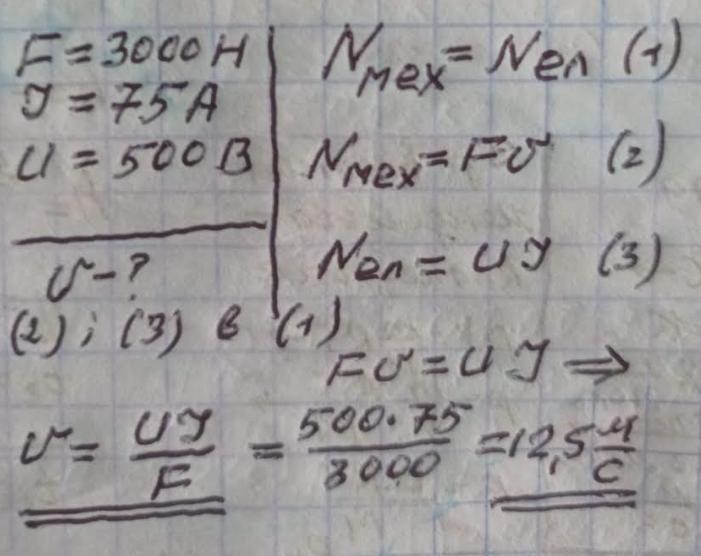 F = 3000 Н
I = 75 А
U = 500 В
v - ?
Nмех = Nел (1)
Nмех = Fv (2)
Nел = UI (3)
(2) ; (3) в (1)
Fv = UI ⇒
v = UI/F = 500·75/3000 = 12,5 м/с